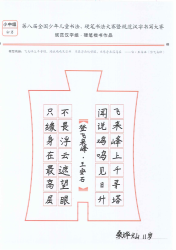 第八届全国少年儿童书法、硬笔书法大赛暨规范汉字书写大赛
规范汉字组·硬笔楷书作品
飞来峰上千寻塔
闻说鸡鸣见日升
登飞来峰·王安石
不畏浮云遮望眼
只缘身在最高层
11岁